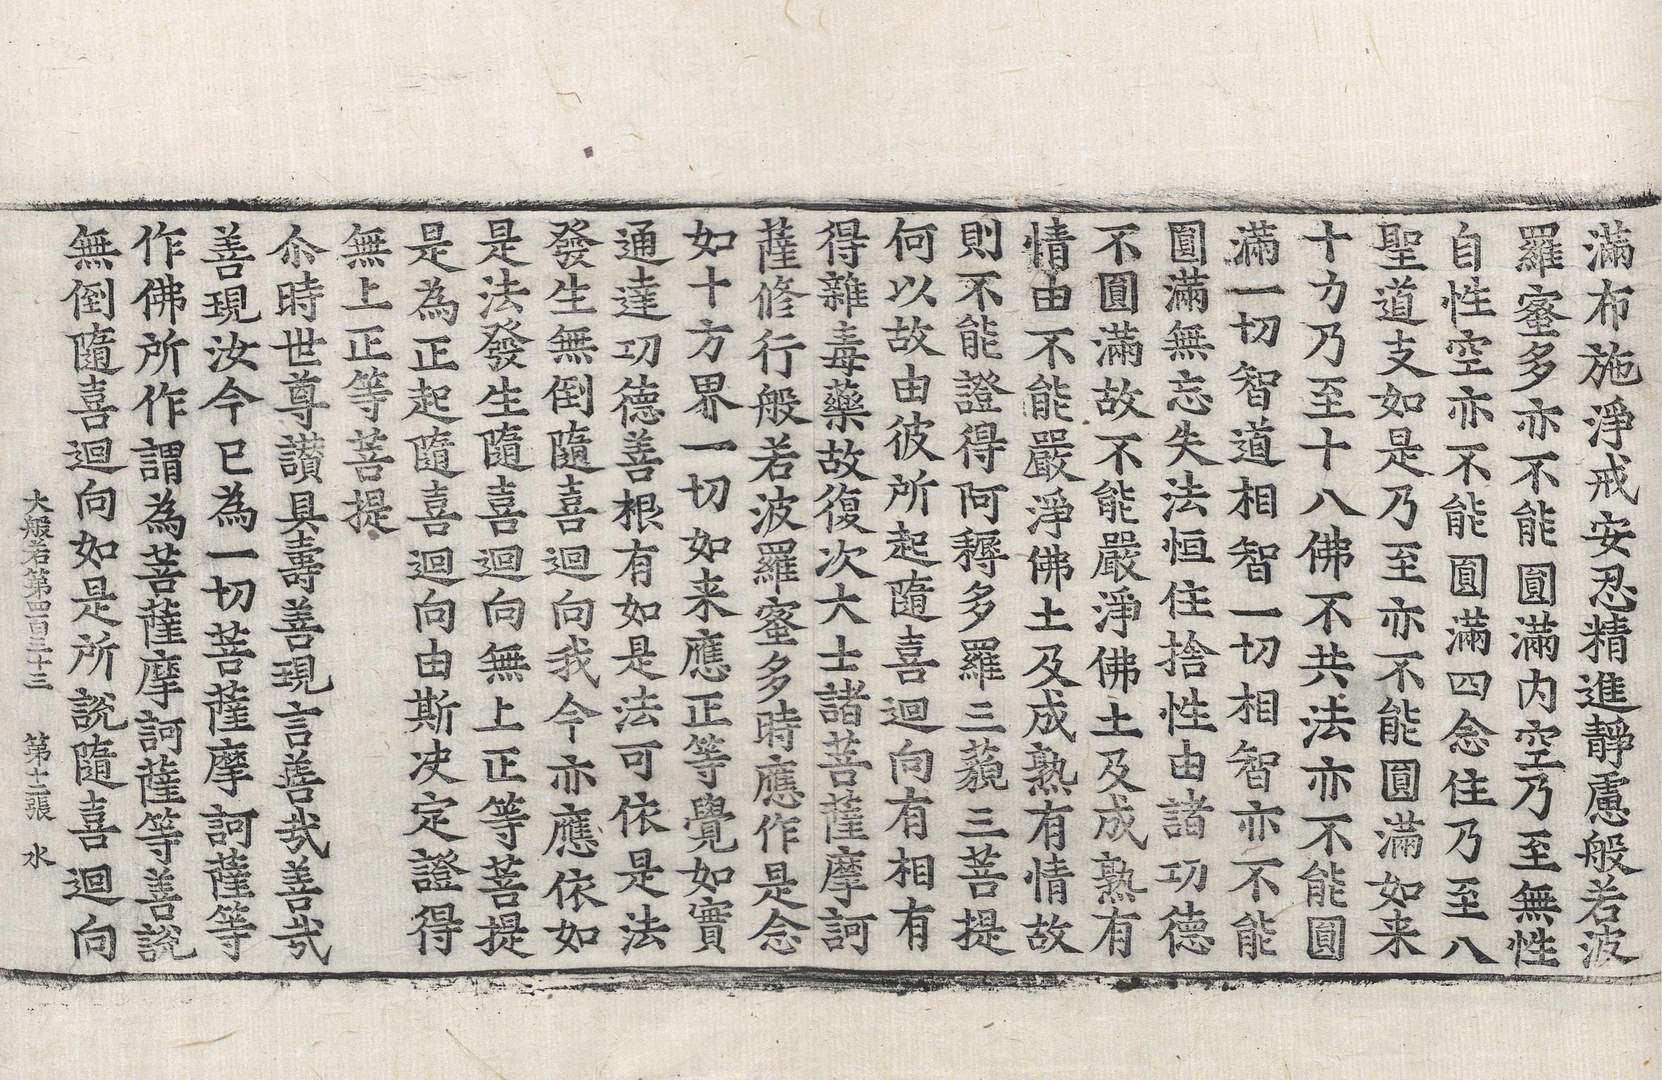 滿布施淨戒安忍精進靜慮般若波
羅蜜多亦不能圓滿內空乃至無性
自性空亦不能圓滿四念住乃至八
聖道支如是乃至亦不能圓滿如来
十力乃至十八佛不共法亦不能圓
滿一切智道相智一切相智亦不能
圓滿無忘失法恒住捨性由諸功德
不圓滿故不能嚴淨佛土及成熟有
情由不能嚴淨佛土及成熟有情故
則不能證得阿耨多羅三藐三菩提
何以故由彼所起隨喜迴向有相有
得雜毒藥故復次大士諸菩薩摩訶
薩修行般若波羅蜜多時應作是念
如十方界一切如来應正等覺如實
通達功德善根有如是法可依是法
發生無倒隨喜迴向我今亦應依如
是法發生隨喜迴向無上正等菩提
是為正起隨喜迴向由斯决定證得
無上正等菩提
尒時世尊讃具壽善現言善㢤善㢤
善現汝今已為一切菩薩摩訶薩等
作佛所作謂為菩薩摩訶薩等善說
無倒隨喜迴向如是所說隨喜迴向
大般若第四百三十三 第十二張 水